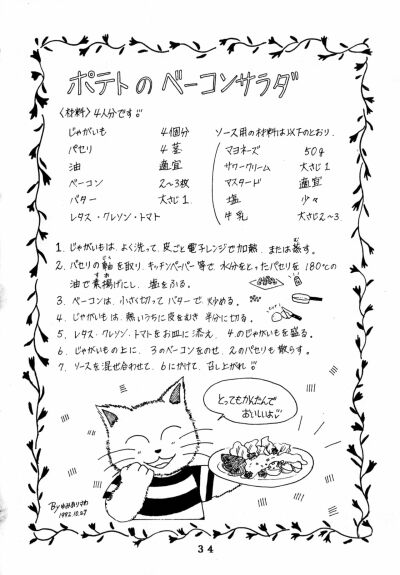 ポテトのベーコンサラダ
〈材料〉4人分です!!
じゃがいも 4個分
パセリ 4茎
油 適宜
ベーコン 2〜3枚
バター 大さじ1
レタス・クレソン・トマト
ソース用の材料は以下のとおり.
マヨネーズ 50g
サワークリーム 大さじ1
マスタード 適宜
塩 少々
牛乳 大さじ2〜3
1. じゃがいもは、よく洗って、皮ごと電子レンジで加熱、または蒸す。
2. パセリの軸を取り、キッチンペーパー等で、水分をとったパセリを180℃の
油で素揚げにし、塩をふる。
3. ベーコンは、小さく切ってバターで、炒める。
4. じゃがいもは、熱いうちに皮をむき半分に切る。
5. レタス・クレソン・トマトをお皿に添え、4.のじゃがいもを盛る。
6. じゃがいもの上に、3のベーコンをのせ、2のパセリも散らす。
7. ソースを混ぜ合わせて、6にかけて、召し上がれ!!
とってもかんたんで
おいしいよ!!
By ゆみありさわ
1992.10.29
34